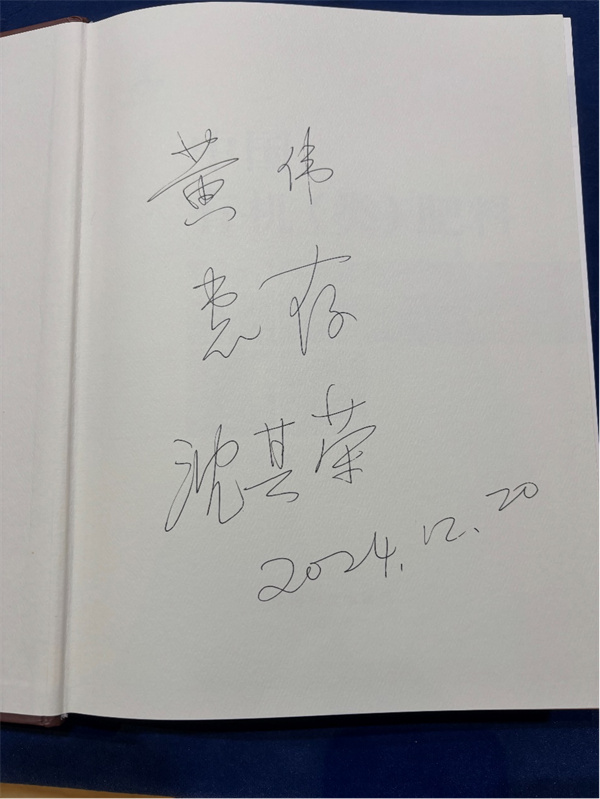 黄伟
惠存
沈其荣
2024.12.20